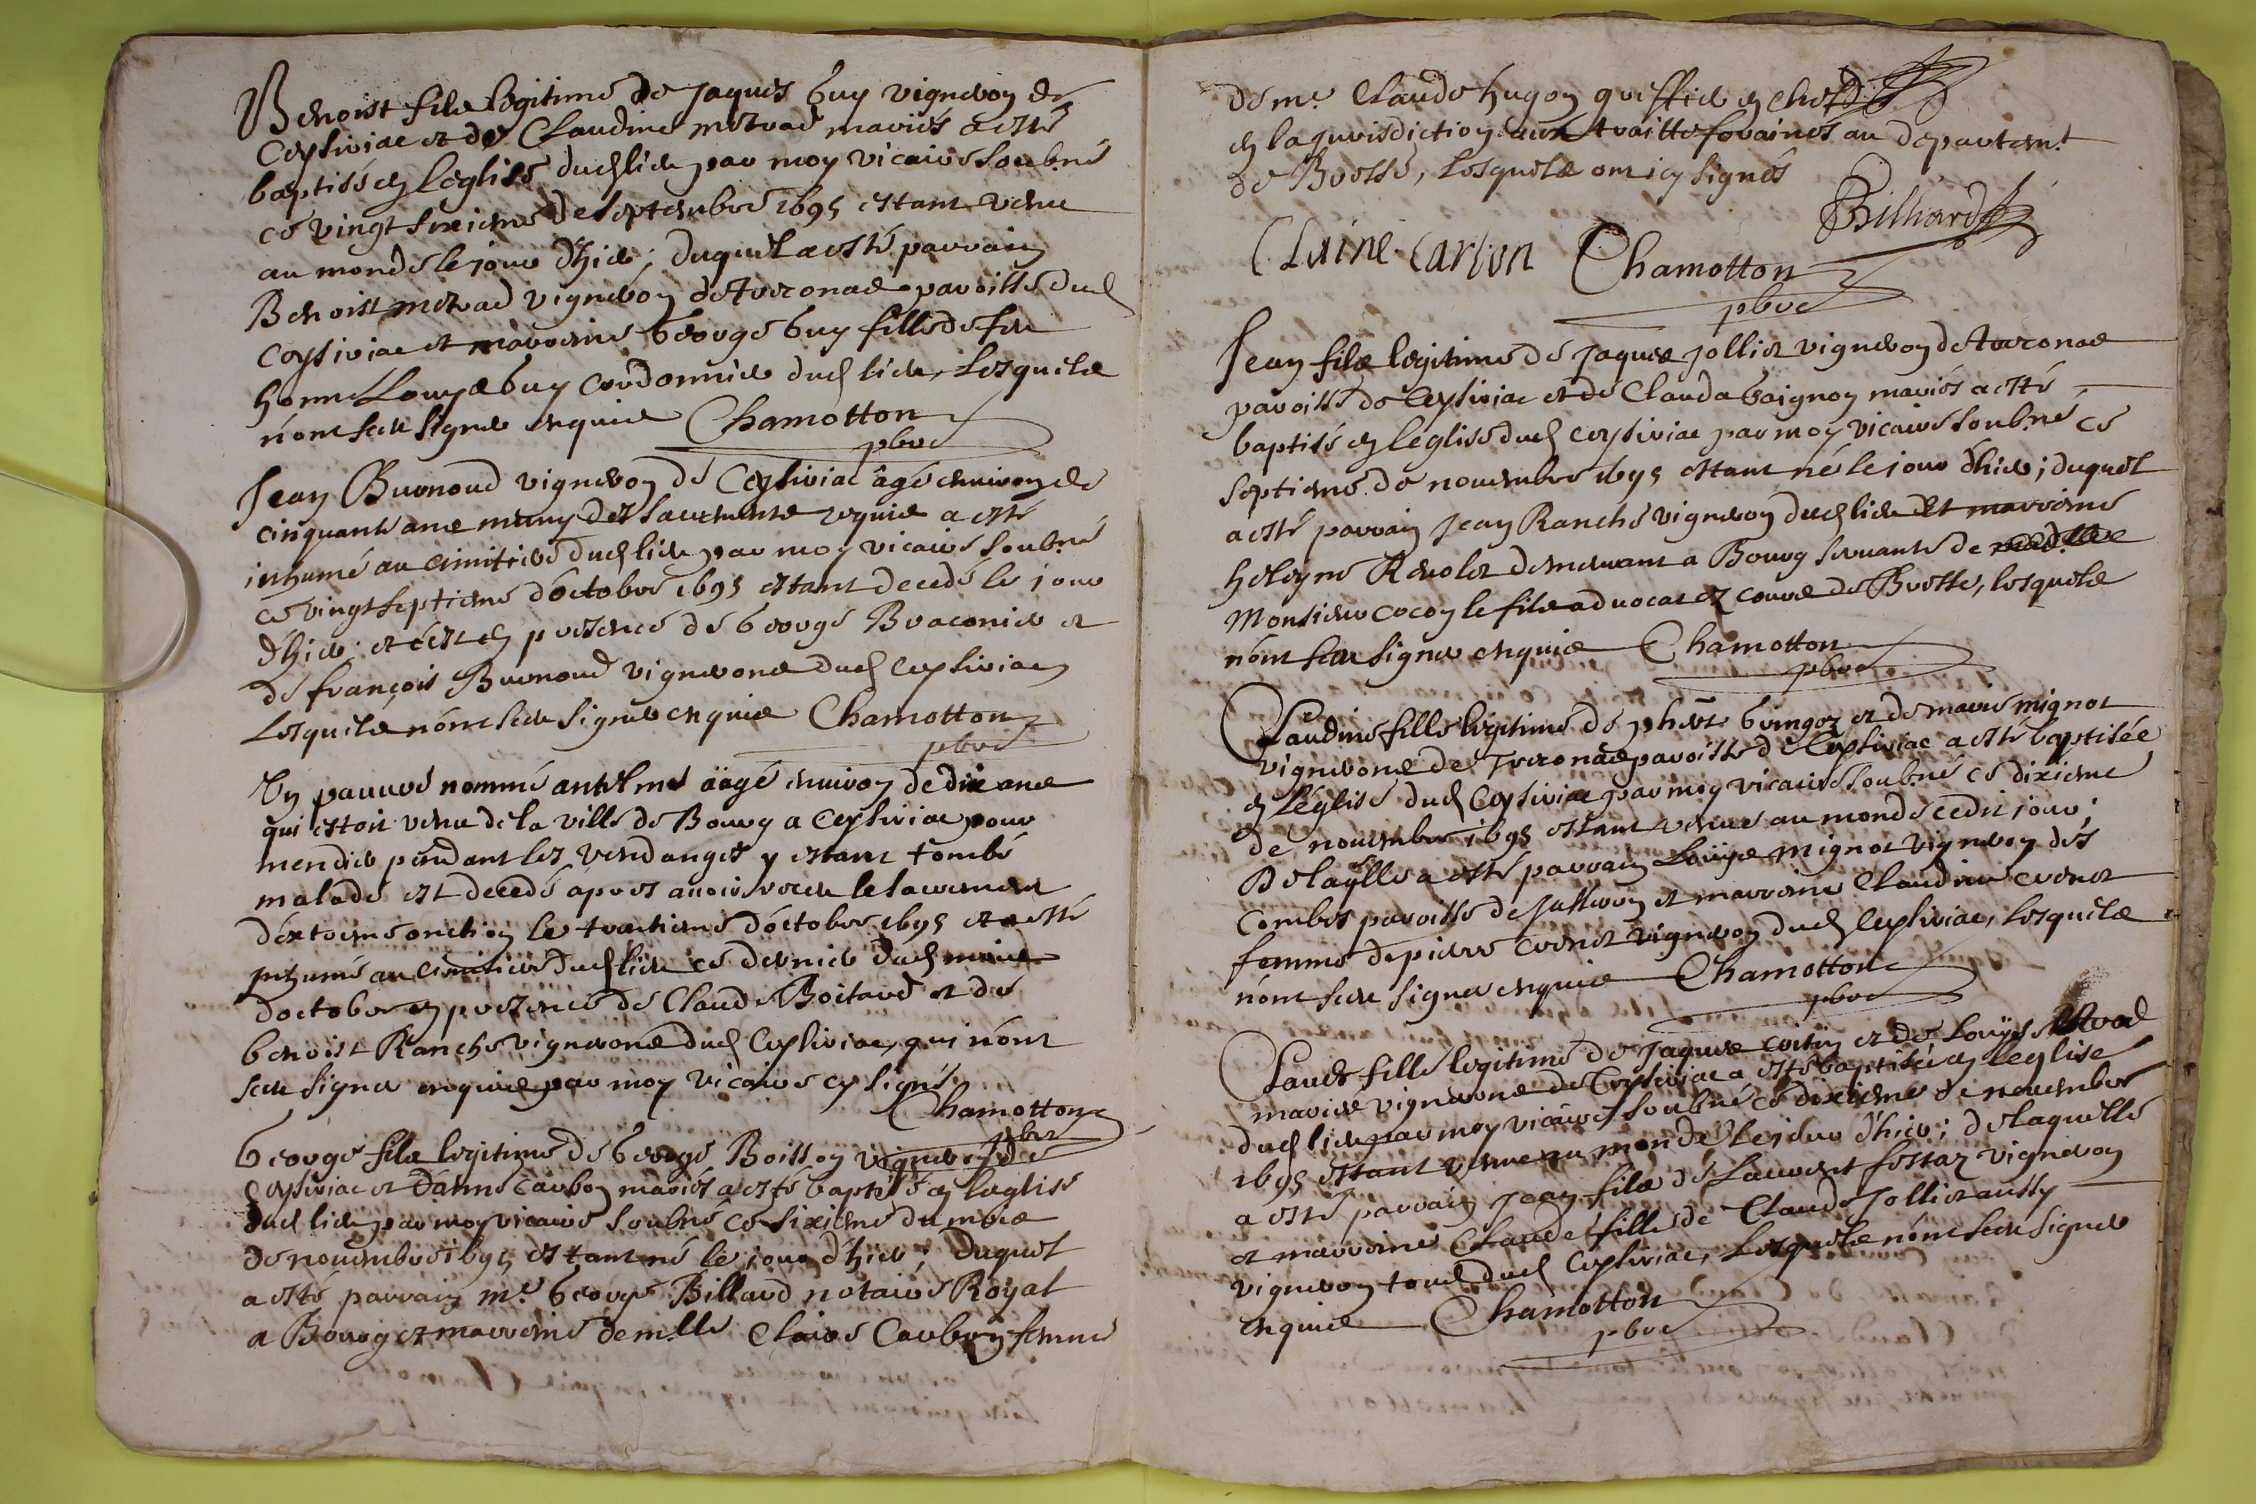 Benoist fils legitime de Jaques Guy vigneron de
Ceyseriac et de Claudine metrad mariés a esté
baptisé en leglise dud lieu par moy vicaire soubné
ce vingt sixieme de septembre 1695 estant venu
au monde le jour d'hier; duquel a esté parrain
Benoist metrad vigneron de paroisse dud
Ceyseriac et marreine George Guy fille de feu
honn. Louys Guy cordonnier dud lieu, lesquels
n'ont sceu signer enquis Chamotton
pbre
Jean Burnoud vigneron de Ceyseriac âgé environ de
cinquante ans muny des sacrements requis a esté
inhumé au cimitiere dud lieu par moy vicaire soubné
ce vingt septieme d'octobre 1695 estant decedé le jour
d'hier; et c'est en presence de George Braconier et
de françois Burnoud vignerons dud Ceyseriac
lesquels n'ont sceu signer enquis Chamotton
pbre
Un pauvre nommé antelme äagé environ de dix ans
qui estoit venu de la ville de Bourg a Ceyseriac pour
mendier pendant les vendanges y estant tombé
malade est decedé apres avoir receu le sacrement
d'extreme onction le trantieme d'octobre 1695 et a esté
inhumé au cimitiere dud lieu ce dernier dud mois
d'octobre en presence de Claude Boitard et de
benoist Ranche vignerons dud Ceyseriac, qui n'ont
sceu signer enquis par moy vicaire cy signé
Chamotton
pbre
George fils legitime de George Boisson vigneron de
Ceyseriac et d'anne Carbon mariés a esté baptisé en leglise
dud lieu par moy vicaire soubné ce sixieme du mois
de novembre 1695 estant né le jour d'hier; duquel
a esté parrain me. George Billard notaire Royal
a Bourg et marreine demlle Claire Carbon femme
de me. Claude hugon greffier en chef
en la jurisdiction aux traitte foraines au departemt
de Bresse, lesquels ont icy signés
Billiard
Claine Carbon Chamotton
pbre
Jean fils legitime de Jaques Jollier vigneron de
paroisse de Ceyseriac et de Clauda Gaignon mariés a esté
baptisé en leglise dud Ceyseriac par moy vicaire soubné ce
septieme de novembre 1695 estant né le jour d'hier; duquel
a esté parrain Jean Ranche vigneron dud lieu Et marreine
heleyne Revolet demeurant a Bourg servante de
Monsieur cocon le fils advocat ez cours de Bresse, lesquels
n'ont sceu signer enquis Chamotton
pbre
Claudine fille legitime de phert Gringoz et de marie mignot
vignerons de paroisse de Ceyseriac a esté baptisée
en l'église dud Ceyseriac par moy vicaire soubné ce dixieme
de novembre 1695 estant venue au monde cedit jour;
De laqlle a esté parrain Louys mignot vigneron des
Combes paroisse de Jasseron et marreine Claudine
femme de pierre vigneron dud Ceyseriac, lesquels
n'ont sceu signer enquis Chamotton
pbre
Claude fille legitime de Jaques et de Louyse
mariés vignerons de Ceyseriac a esté baptisée en leglise
dud lieu par moy vicaire soubné ce dixieme de novembre
1695 estant venue au monde le jour d'hier; de laquelle
a esté parrain Jean fils de Laurent vigneron
et marreine Claude fille de Claude Jollier aussy
vigneron tous dud Ceyseriac, lesquels n'ont sceu signer
enquis Chamotton
pbre